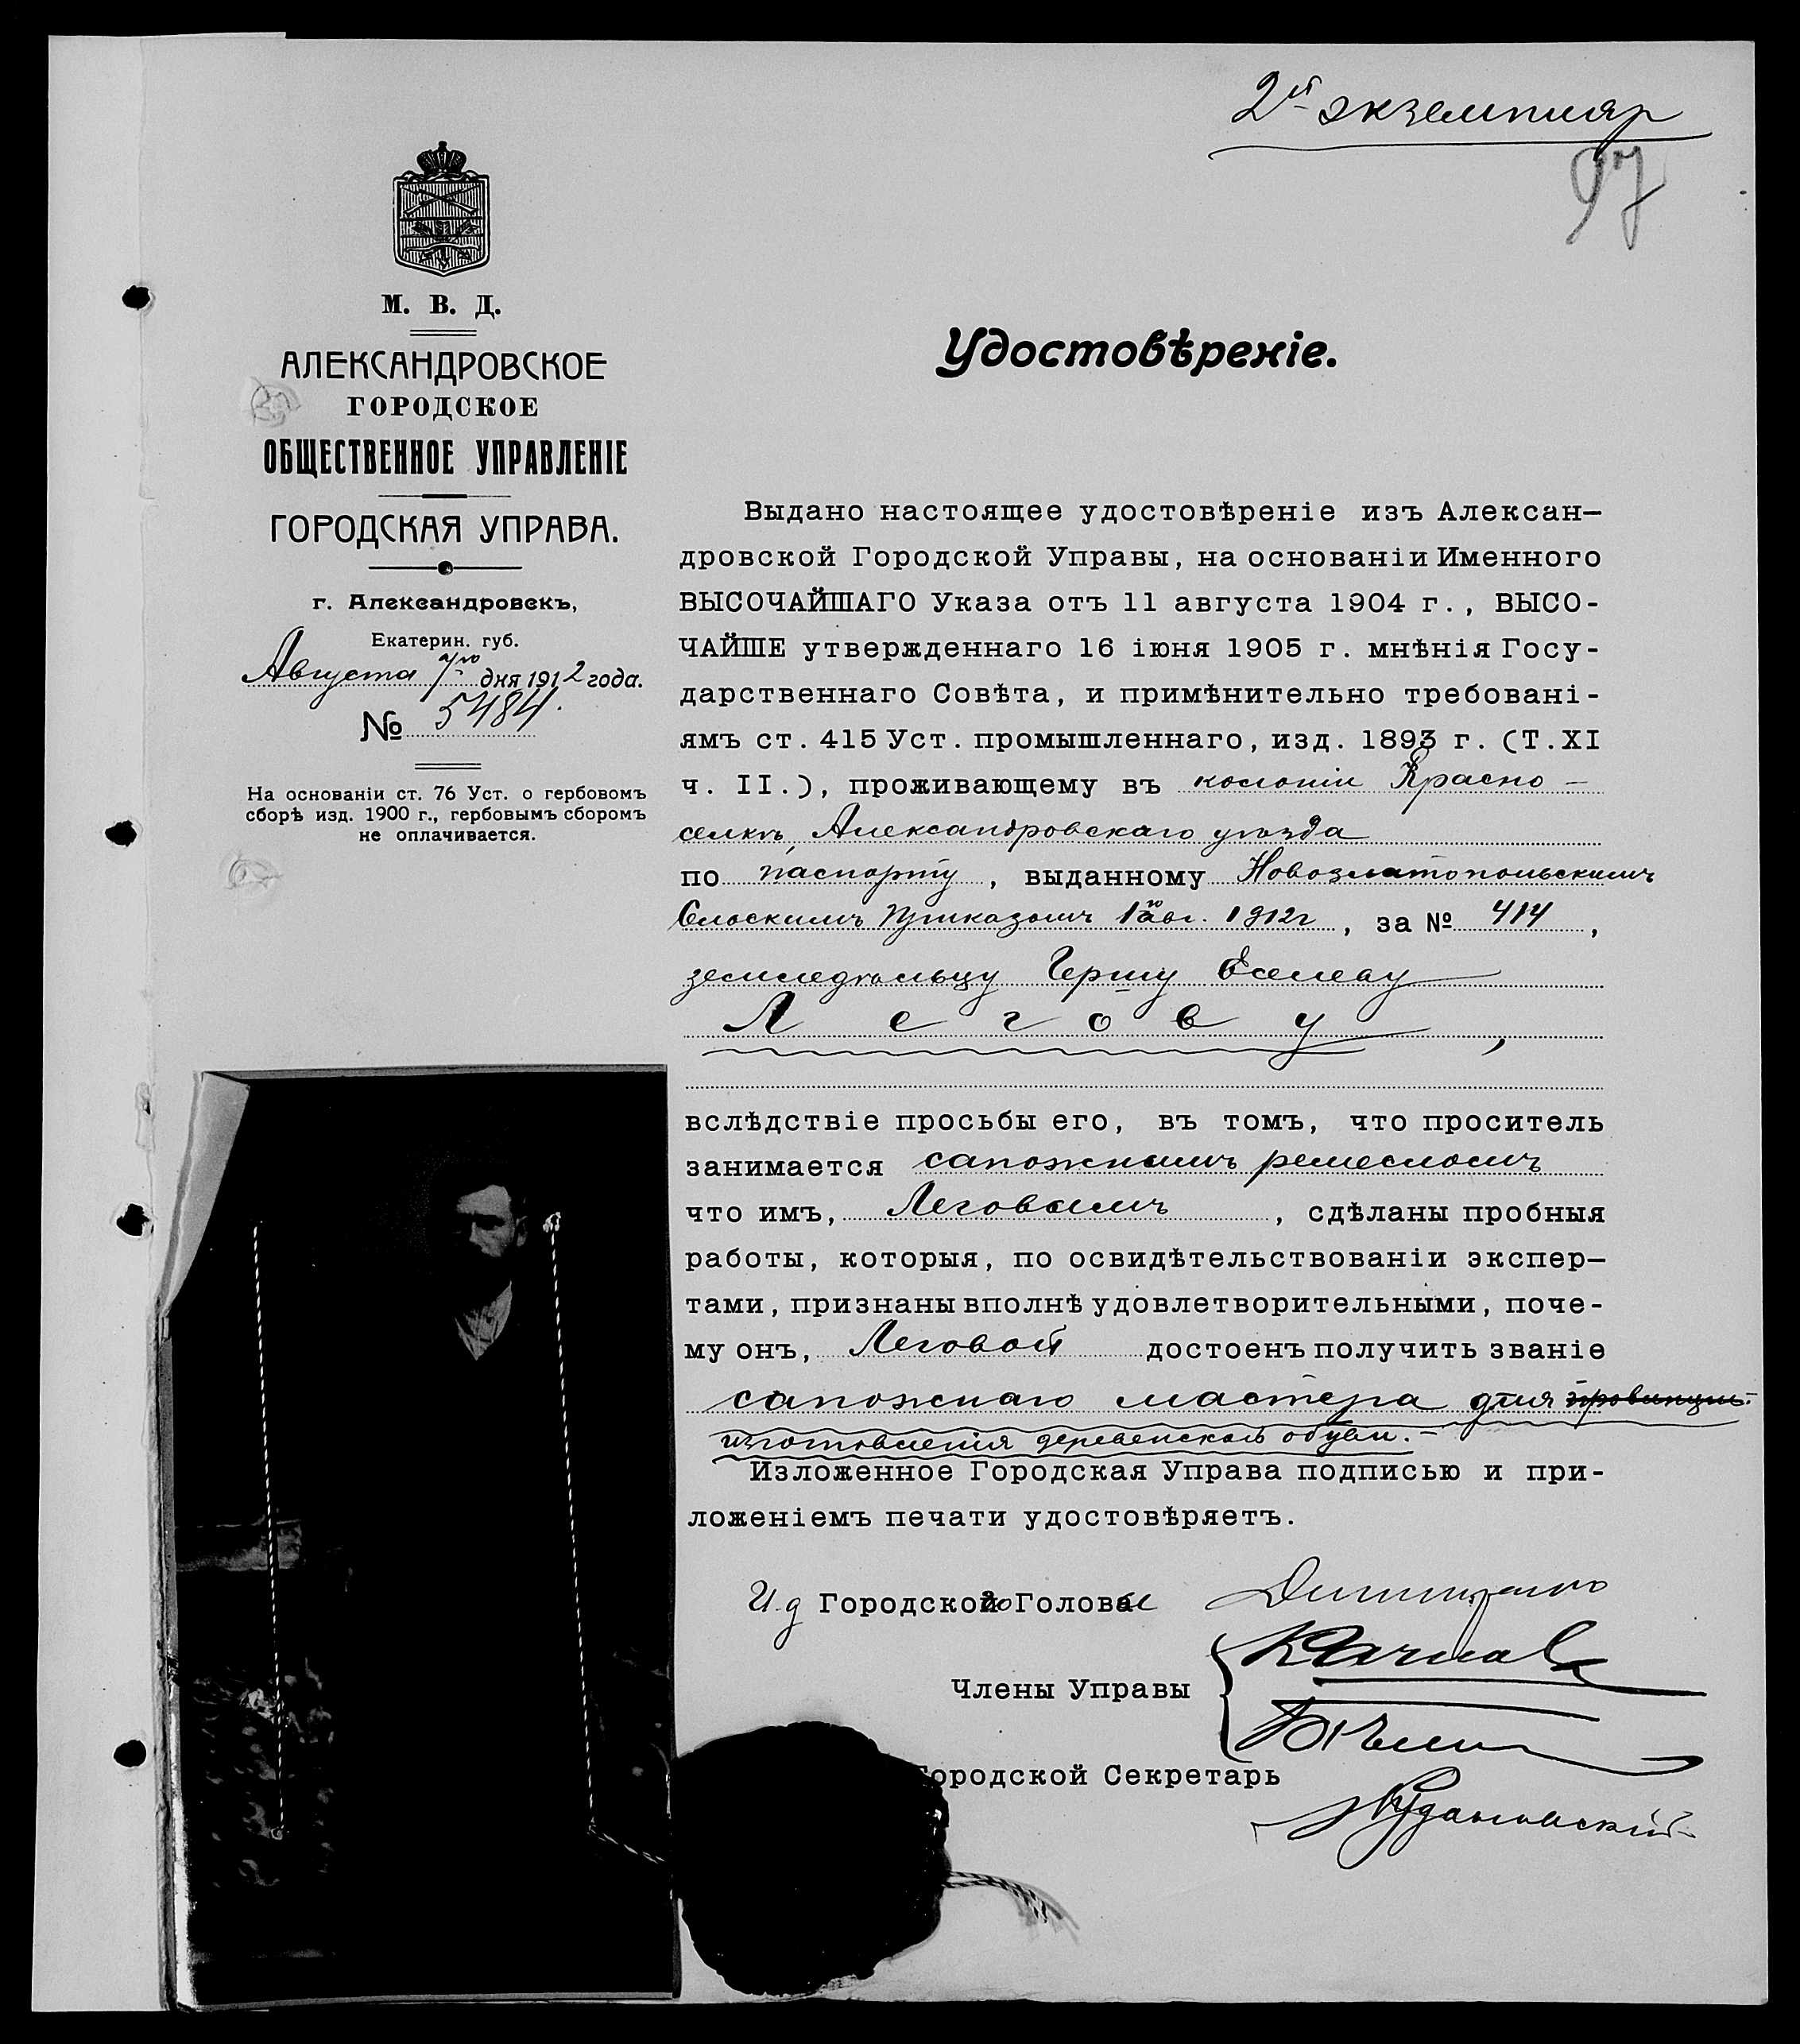 2й экземпляр
97
М. В. Д.
АЛЕКСАНДРОВСКОЕ
ГОРОДСКОЕ
ОБЩЕСТВЕННОЕ УПРАВЛЕНІЕ
ГОРОДСКАЯ УПРАВА.
г. Александровскъ,
Екатерин. губ.
Августа 7го дня 1912 года.
№ 5484.
На основаніи ст. 76 Уст. о гербовомъ
сборѣ изд. 1900 г., гербовымъ сборомъ
не оплачивается.
Удостовѣреніе.
Выдано настоящее удостовѣреніе изъ Алексан—
дровской Городской Управы, на основаніи Именного
ВЫСОЧАЙШАГО Указа отъ 11 августа 1904 г., ВЫСО-
ЧАЙШЕ утвержденнаго 16 іюня 1905 г. мнѣнія Госу-
дарственнаго Совѣта, и примѣнительно требовані-
ямъ ст. 415 Уст. промышленнаго, изд. 1893 г. (Т. XI
ч. II.), проживающему въ колоніи Красно-
селкѣ, Александровскаго уѣзда
по паспорту, выданному Новозлатопольскимъ
Сельскимъ Приказомъ 1го авг. 1912г, за № 414,
земледѣльцу Гершу
Легову,
вслѣдствіе просьбы его, въ томъ, что проситель
занимается сапожнымъ ремесломъ
что имъ, Леговымъ, сдѣланы пробныя
работы, которыя, по освидѣтельствованіи экспер—
тами, признаны вполнѣ удовлетворительными, поче-
му онъ, Леговой достоенъ получить званіе
сапожнаго мастера для провинціи
изготовленія деревенской обуви.-
Изложенное Городская Управа подписью и при-
ложеніемъ печати удостовѣряетъ.
И.д Городского Головы
Члены Управы
Городской Секретарь